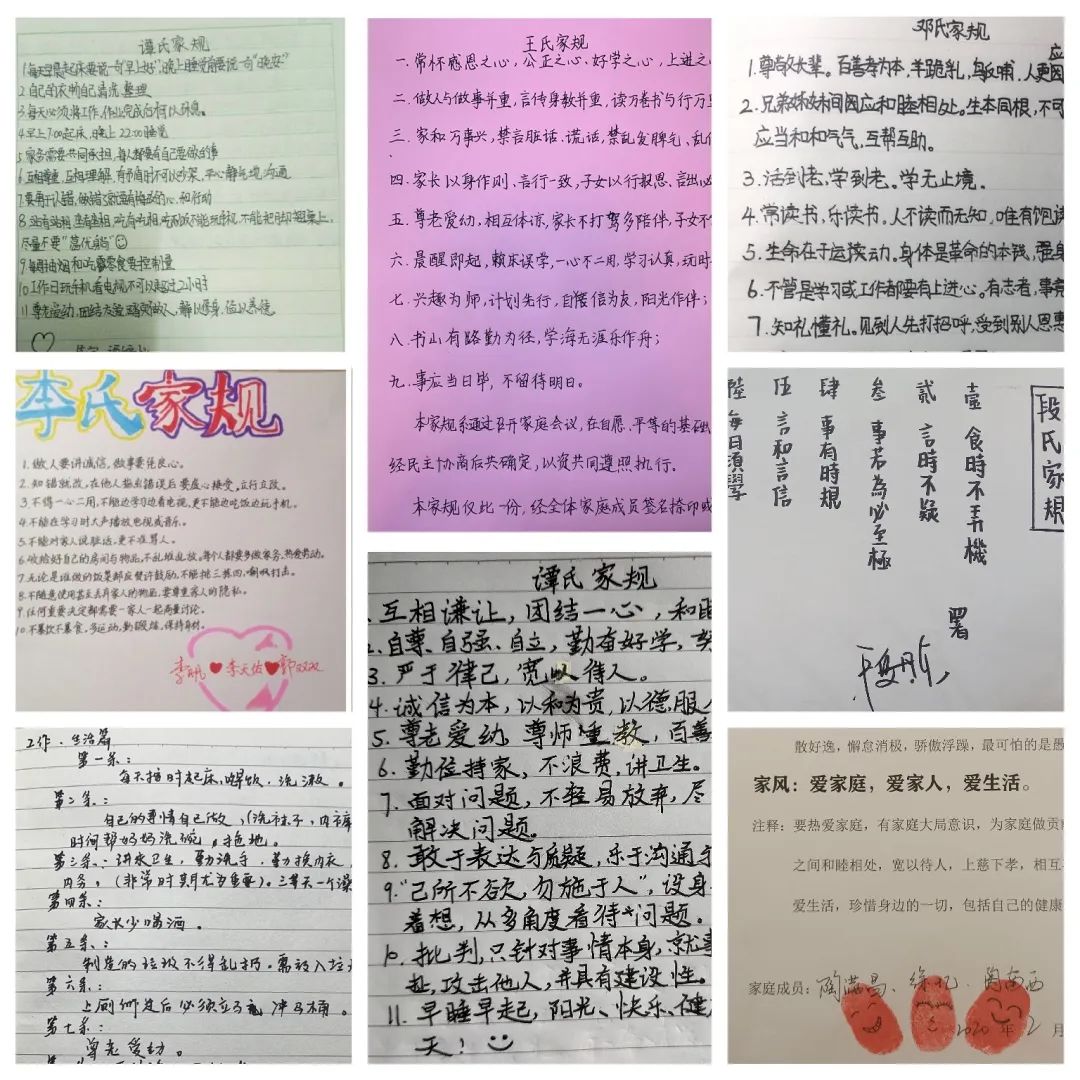 谭氏家规
1.每天早晨起床要说一句"早上好"晚上睡觉前要说一句"晚安"
2.自己的衣物自己清洗、整理
3.每天必须将工作,作业完成后才可以休息。
4.早上7:00起床,晚上22:00睡觉
5.家务需要共同承担,每人都要有自己要做的事
6.互相尊重,互相理解,有矛盾时不可以吵架,平心静气地沟通
7.要勇于认错,做错了就要有悔改的心和行动
8.站有站相,坐有坐相,吃有吃相,吃饭不能玩手机,不能把脚翘桌上,
尽量不要"葛优躺"
9.每周抽烟和吃零食要控制量
10.工作日玩手机看电视不可以超过2小时
11.尊老爱幼,团结友爱,踏实做人,静以修身,俭以养德
王氏家规
一.常怀感恩之心,公正之心、好学之心,上进之心
二.做人与做事并重,言传身教并重,读万卷书与行万里
三.家和万事兴,禁言脏话、谎话,禁乱发脾气、乱
四.家长以身作则、言行一致,子女以行报恩、言出必
五.尊老爱幼,相互体谅,家长不打骂多陪伴,子女不
六.晨醒即起,赖床误学,一心不二用,学习认真,玩时
七.兴趣为师,计划先行,自信为友,阳光作伴;
八.书山有路勤为径,学海无涯乐作舟;
九.事应当日毕,不留待明日。
本家规系通过召开家庭会议,在自愿、平等的基础
经民主协商后共确定,以资共同遵照执行。
本家规仅此一份,经全体家庭成员签名捺印或
邓氏家规
1.尊敬长辈。百善孝为本,羊跪乳,鸟反哺,人更应
2.兄弟姊妹间因应和睦相处。生本同根,不可
应当和和气气,互帮互助。
3.活到老,学到老。学无止境。
4.常读书,乐读书,人不读而无知,唯有饱读
5.生命在于运动。身体是革命的本钱,强身
6.不管是学习或工作都要有上进心。有志者,事竟
7.知礼懂礼。见到人先打招呼,受到别人恩惠
李氏家规
1.做人要讲诚信,做事要凭良心。
2.知错就改,在他人指出错误后要虚心接受,立行立改。
3.不得一心二用,不能边学习边看电视,更不能边吃饭边玩手机。
4.不能在学习时大声播放电视或音乐。
5.不能对家人说脏话,更不准骂人。
6.收拾好自己的房间与物品,不乱堆乱放,每个人都要多做家务,热爱劳动。
7.无论是谁做的饭菜都应赞许鼓励,不能挑三拣四,嘲讽打击。
8.不随意使用甚至丢弃家人的物品,要尊重家人的隐私。
9.任何重要决定都需要一家人一起商量讨论。
10.不暴饮不暴食,多运动,勤锻炼,保持身材。
李帆 李天佑 郭双双
段氏家規
壹 食時不弄機
貳 言時不疑
叁 事若為必至極
肆 事有時規
伍 言和言信
陸 每日須學
署
工作、生活篇
第一条:
每天按时起床、喂饭、洗漱。
第二条:
自己的事情自己做,(洗袜子,内裤
时间帮妈妈洗碗、拖地。
第三条:讲求卫生,勤洗手,勤换内衣,
内务,(非常时期尤为重要)。三每天一个澡
第四条:
家长少喝酒。
第五条:
制造的垃圾不得乱扔。需放入垃圾
第六条:
上厕所过后必须立马冲马桶。
第七条:
尊老爱幼。
谭氏家规
1.互相谦让,团结一心,和睦
2.自尊、自强、自立,勤奋好学,努
3.严于律己,宽以待人。
4.诚信为本,以和为贵,以德服人
5.尊老爱幼,尊师重教,百善
6.勤俭持家,不浪费,讲卫生。
7.面对问题,不轻易放弃,尽
解决问题。
8.敢于表达与质疑,乐于沟通
9."己所不欲,勿施于人",设身
着想,从多角度看待问题。
10.批判,只针对事情本身,就事
扯,攻击他人,并具有建设性。
11.早睡早起,阳光、快乐、健
天!
散好逸,懈怠消极,骄傲浮躁,最可怕的是愚
家风:爱家庭,爱家人,爱生活。
注释:要热爱家庭,有家庭大局意识,为家庭做贡献
之间和睦相处,宽以待人,上慈下孝,相互
爱生活,珍惜身边的一切,包括自己的健康
家庭成员:
2020年2月